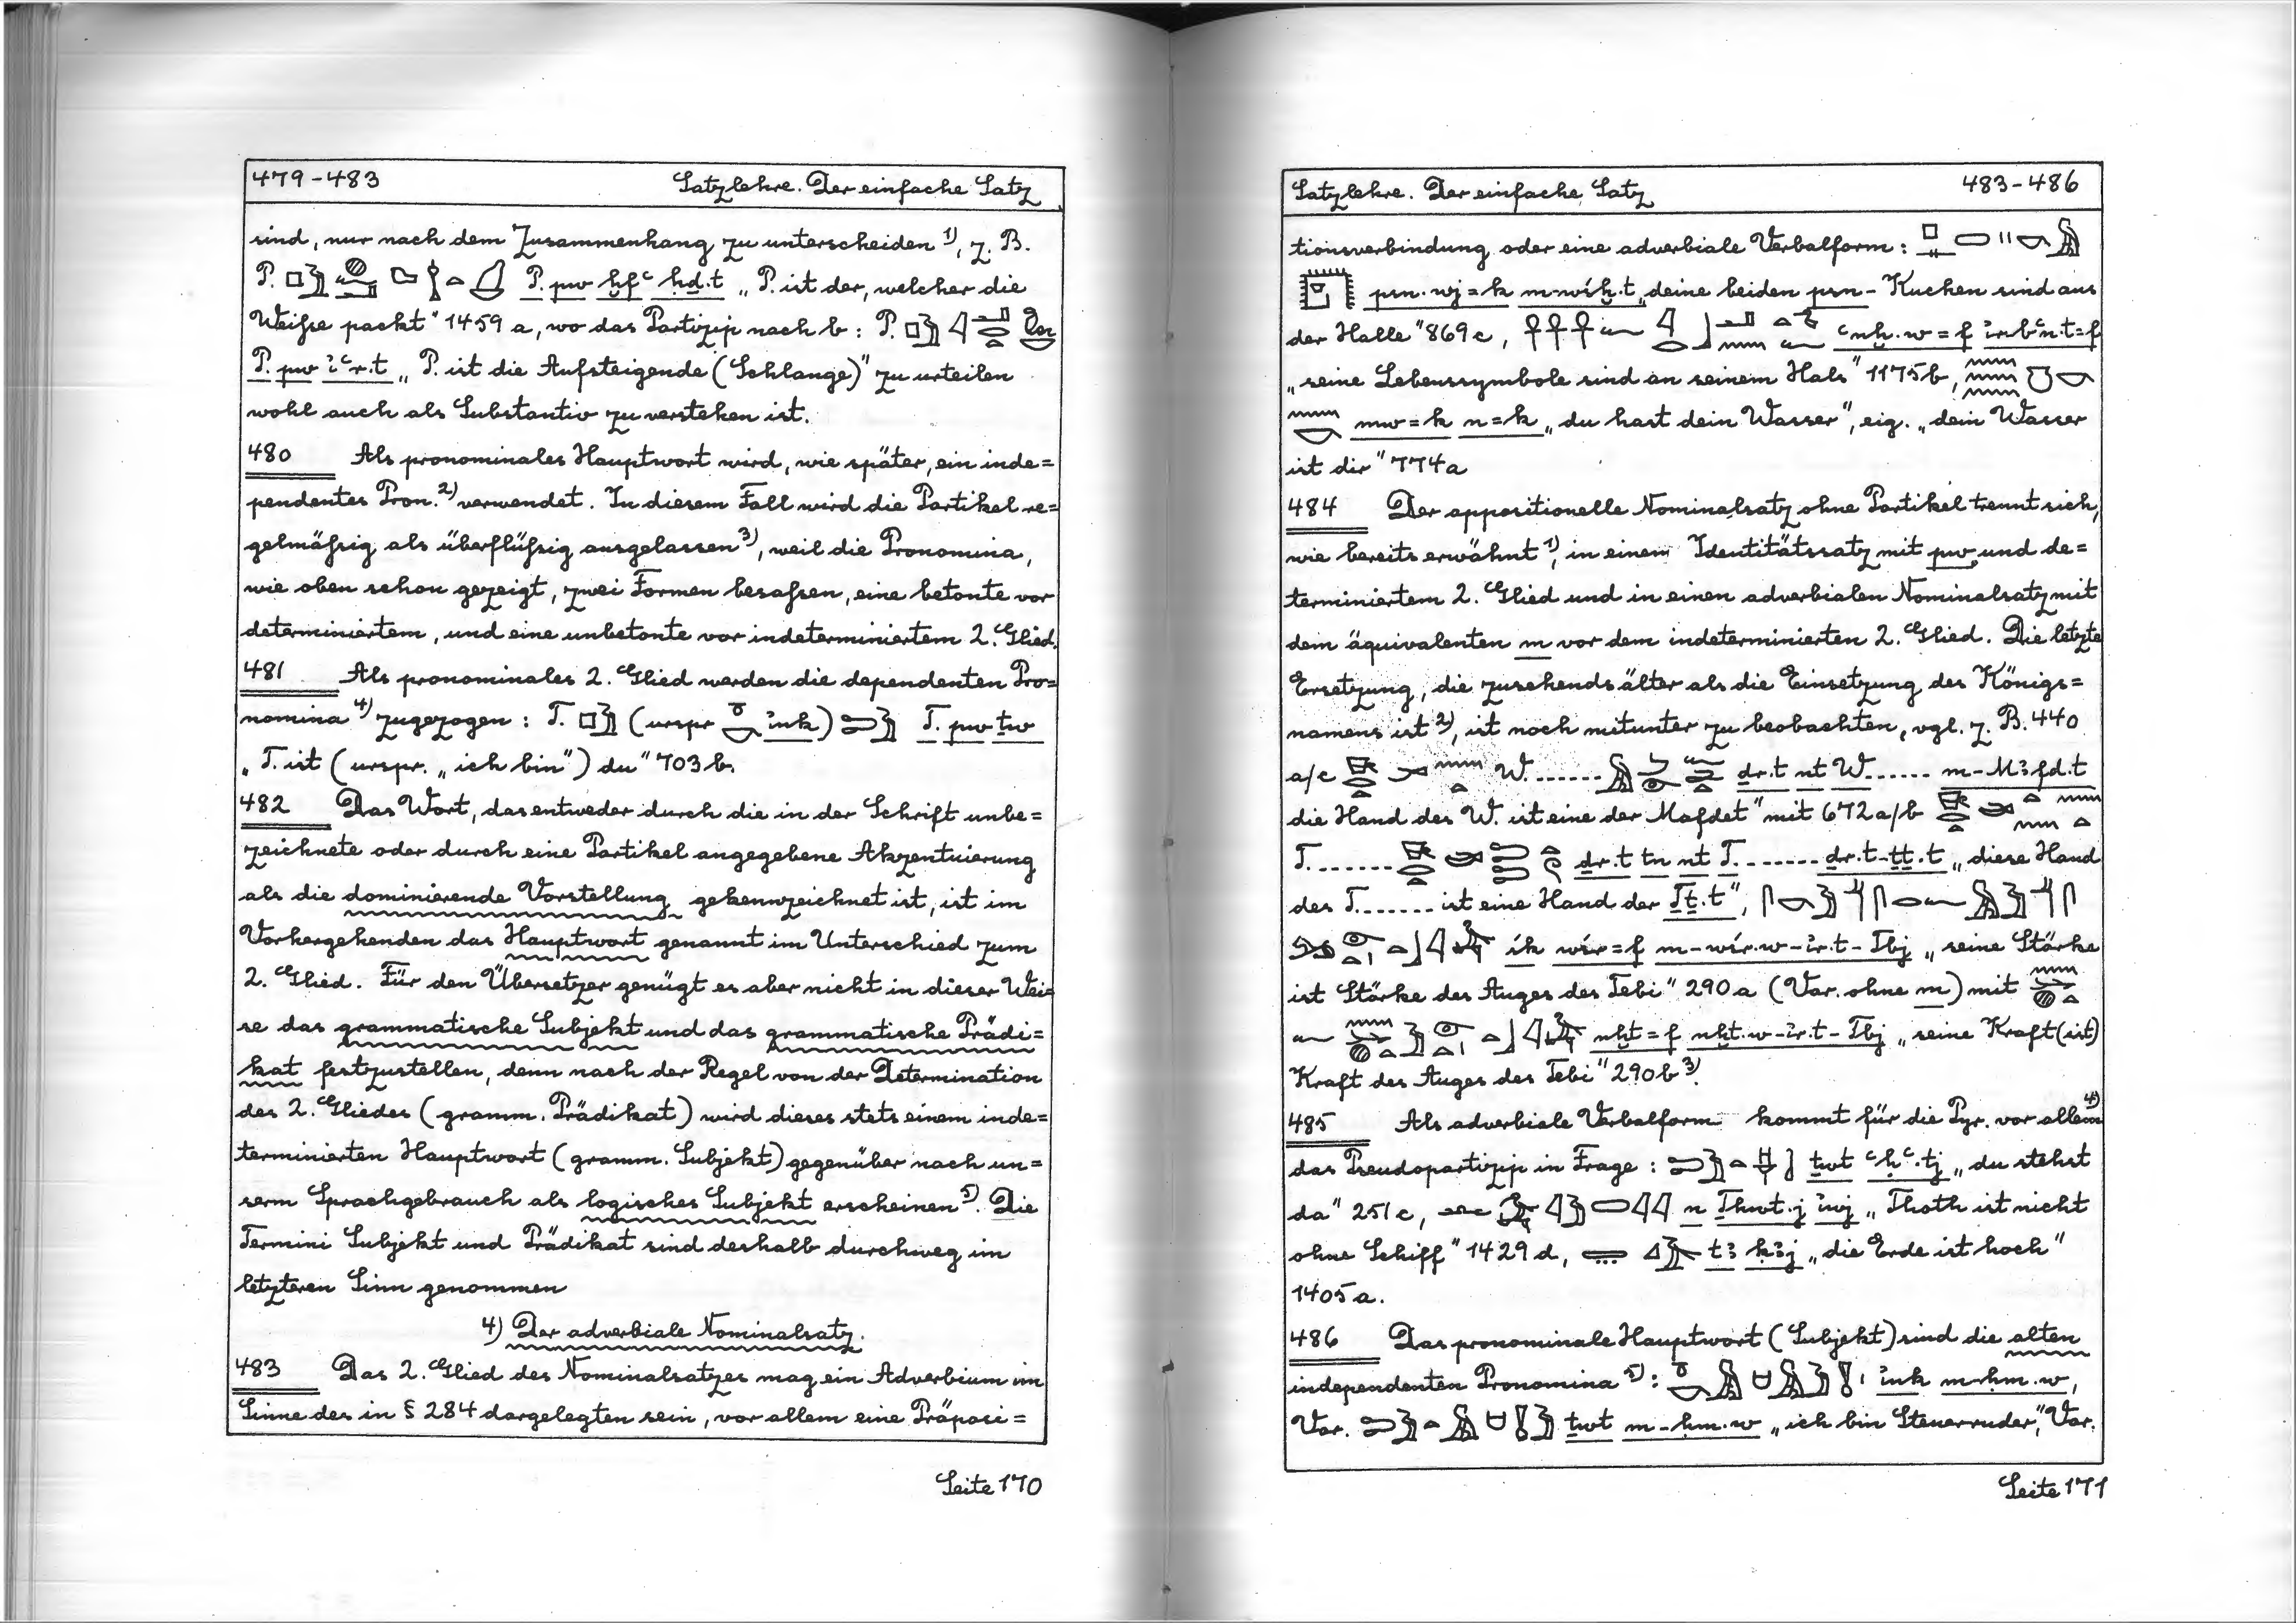 479-483 Satzlehre. Der einfache Satz
sind, nur nach dem Zusammenhang zu unterscheiden 1), z. B.
P. P. pw ḫfꜥ ḥḏ.t „P. ist der, welcher die
Weiße packt" 1459 a, wo das Partizip nach b: P.
P. pw ỉꜥr.t „P. ist die Aufsteigende (Schlange)" zu urteilen
wohl auch als Substantiv zu verstehen ist.
480 Als pronominales Hauptwort wird, wie später, ein inde=
pendentes Pron. 2) verwendet. In diesem Fall wird die Partikel re=
gelmäßig als überflüßig ausgelassen 3), weil die Pronomina,
wie oben schon gezeigt, zwei Formen besaßen, eine betonte vor
determiniertem, und eine unbetonte vor indeterminiertem 2. Glied.
481 Als pronominales 2. Glied werden die dependenten Pro=
nomina 4) zugezogen: T. (urspr ỉnk) T. pw ṯw
„T. ist (urspr. „ich bin") du" 703 b.
482 Das Wort, das entweder durch die in der Schrift unbe=
zeichnete oder durch eine Partikel angegebene Akzentuierung
als die dominierende Vorstellung gekennzeichnet ist, ist im
Vorhergehenden das Hauptwort genannt im Unterschied zum
2. Glied. Für den Übersetzer genügt es aber nicht in dieser Wei=
se das grammatische Subjekt und das grammatische Prädi=
kat festzustellen, denn nach der Regel von der Determination
des 2. Gliedes (gramm. Prädikat) wird dieses stets einem inde=
terminierten Hauptwort (gramm. Subjekt) gegenüber nach un=
serm Sprachgebrauch als logisches Subjekt erscheinen 5). Die
Termini Subjekt und Prädikat sind deshalb durchweg im
letzteren Sinn genommen
4) Der adverbiale Nominalsatz.
483 Das 2. Glied des Nominalsatzes mag ein Adverbium im
Sinne des in § 284 dargelegten sein, vor allem eine Präposi=
Seite 170
Satzlehre. Der einfache Satz 483-486
tionsverbindung oder eine adverbiale Verbalform:
psn.wj=k m-wśḫ.t „deine beiden psn-Kuchen sind aus
der Halle" 869 c, ꜥnḫ.w=f ỉr-bꜥn.t=f
„seine Lebenssymbole sind an seinem Hals" 1175 b,
mw=k n=k „du hast dein Wasser", eig. „dein Wasser
ist dir" 774 a
484 Der appositionelle Nominalsatz ohne Partikel trennt sich,
wie bereits erwähnt 1), in einem Identitätssatz mit pw und de=
terminiertem 2. Glied und in einen adverbialen Nominalsatz mit
dem äquivalenten m vor dem indeterminierten 2. Glied. Die letzte
Ersetzung, die zusehends älter als die Einsetzung des Königs=
namens ist 2), ist noch mitunter zu beobachten, vgl. z. B. 440
a/c W....... ḏr.t nt W...... m-Mꜣfd.t
die Hand des W. ist eine der Mafdet" mit 672 a/b
T........ ḏr.t tn nt T. ....... ḏr.t-ṯṯ.t „diese Hand
des T........ ist eine Hand der Ṯṯ.t",
śk wśr=f m-wśr.w-ỉr.t-Tbj „seine Stärke
ist Stärke des Auges des Tebi" 290 a (Var. ohne m) mit
nḫt=f nḫt.w-ỉr.t-Tbj „seine Kraft (ist)
Kraft des Auges des Tebi" 290 b 3).
485 Als adverbiale Verbalform kommt für die Pyr. vor allem 4)
das Pseudopartizip in Frage: ṯwt ꜥḥꜥ.tj „du stehst
da" 251 c, n Ḏḥwt.j ỉwj „Thoth ist nicht
ohne Schiff" 1429 d, tꜣ ḳꜣj „die Erde ist hoch"
1405 a.
486 Das pronominale Hauptwort (Subjekt) sind die alten
independenten Pronomina 5): ỉnk m-ḥm.w,
Var. ṯwt m-ḥm.w „ich bin Steuerruder", Var.
Seite 171